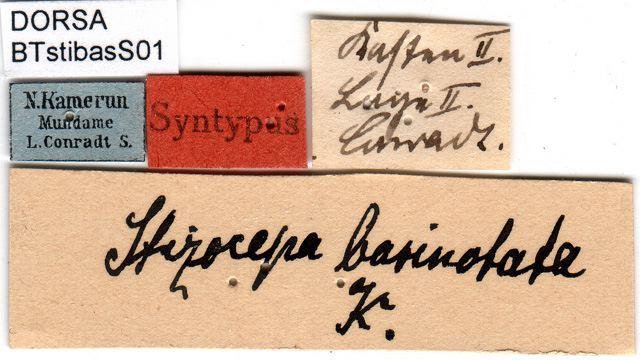 DORSA
BTstibasS01
N. Kamerun
Mundame
L. Conradt S.
Syntypus
Kasten II.
Lage II.
Conradt.
Stizocepa basinotata
K.